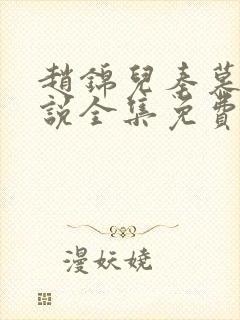 趙錦兒秦慕
說全集免費
漫妖嬈